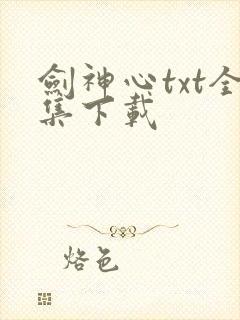 劍神心txt全
集下載
烙色